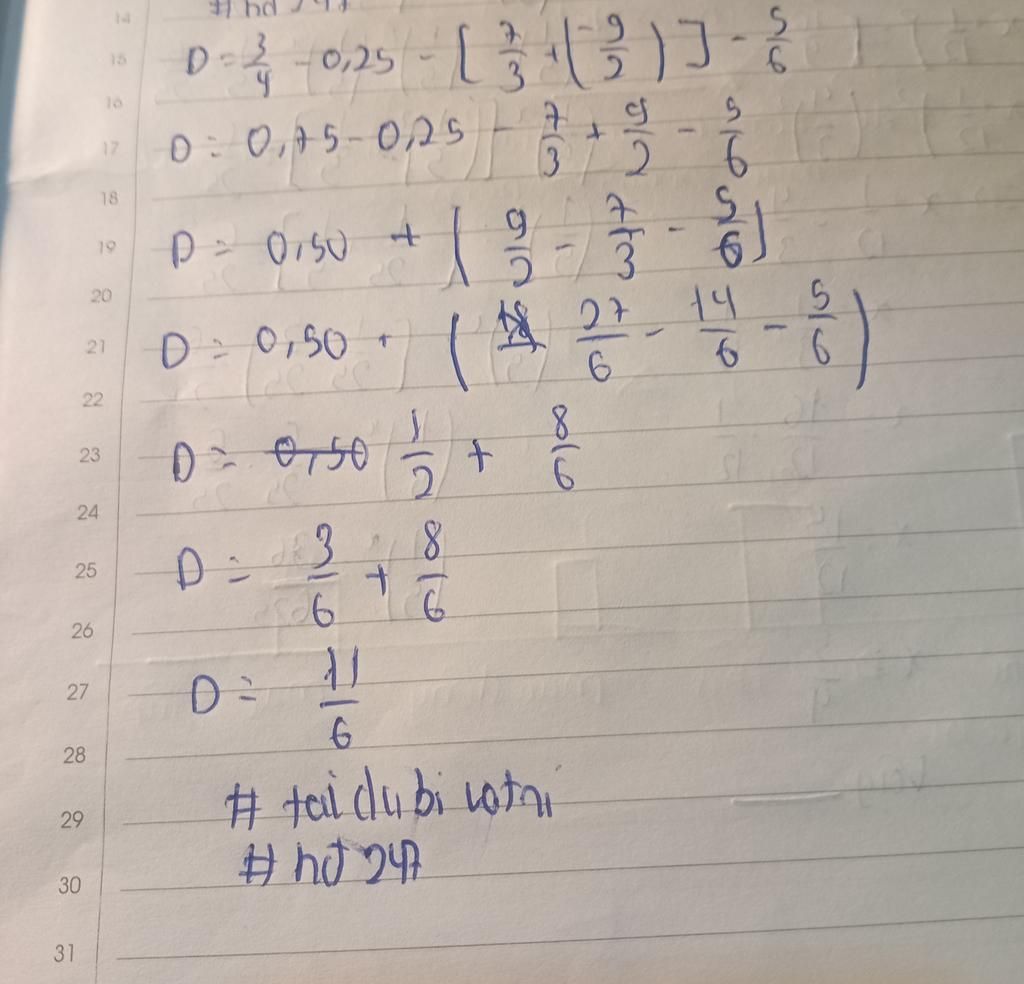 14
# hd 247
15 D = 3/4 - 0,25 - [ 7/3 + ( -9/2 ) ] - 5/6
16
17 D = 0,75 - 0,25 - 7/3 + 9/2 - 5/6
18
19 D = 0,50 + ( 9/2 - 7/3 - 5/6 )
20
21 D = 0,50 + ( 27/6 - 14/6 - 5/6 )
22
23 D = 0,50 1/2 + 8/6
24
25 D = 3/6 + 8/6
26
27 D = 11/6
28
29 # tai dubi
30 # hd 247
31